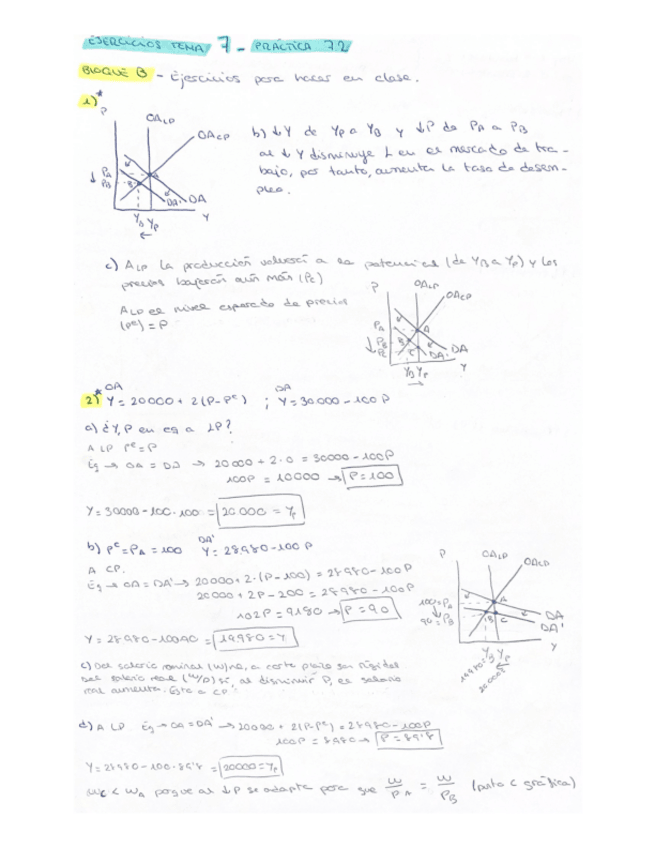 EJERCICIOS TEMA 7 - PRÁCTICA 7.2
BLOQUE B - Ejercicios para hacer en clase.
1)*
P
OALP
OACP
PA
PB
A
B
DA' DA
YB YP
Y
b) ↓Y de YP a YB y ↓P de PA a PB
al ↓Y disminuye L en el mercado de tra-
bajo, por tanto, aumenta la tasa de desem-
pleo.
c) A LP la producción volverá a la potencial (de YB a YP) y los
precios bajarán aún más (PC)
A LP el nivel esperado de precios
(Pe) = P
P
OALP
OACP
PA
PB
PC
A
B
C
DA' DA
YB YP
Y
2)* OA Y = 20000 + 2(P-Pe) ; DA Y = 30000 - 100P
a) ¿Y, P en eq a LP?
A LP Pe = P
Eq → OA = DA → 20000 + 2·0 = 30000 - 100P
100P = 10000 → P = 100
Y = 30000 - 100·100 = 20000 = YP
b) Pe = PA = 100 DA' Y = 28980 - 100P
A CP.
Eq → OA = DA' → 20000 + 2·(P-100) = 28980 - 100P
20000 + 2P - 200 = 28980 - 100P
102P = 9180 → P = 90
Y = 28980 - 100·90 = 19980 = Y
P
OALP
OACP
100 = PA
90 = PB
A
B
C
DA
DA'
YB YP
Y
19980
20000
c) Del salario nominal (W) no, a corto plazo son rígidos
Del salario real (W/P) sí, al disminuir P, el salario
real aumenta. Esto a CP
d) A LP Eq → OA = DA' → 20000 + 2(P-Pe) = 28980 - 100P
100P = 8980 → P = 89'8
Y = 28980 - 100·89'8 = 20000 = YP
WC < WA porque al ↓P se adapta para que W/PA = W/PB (punto C gráfica)